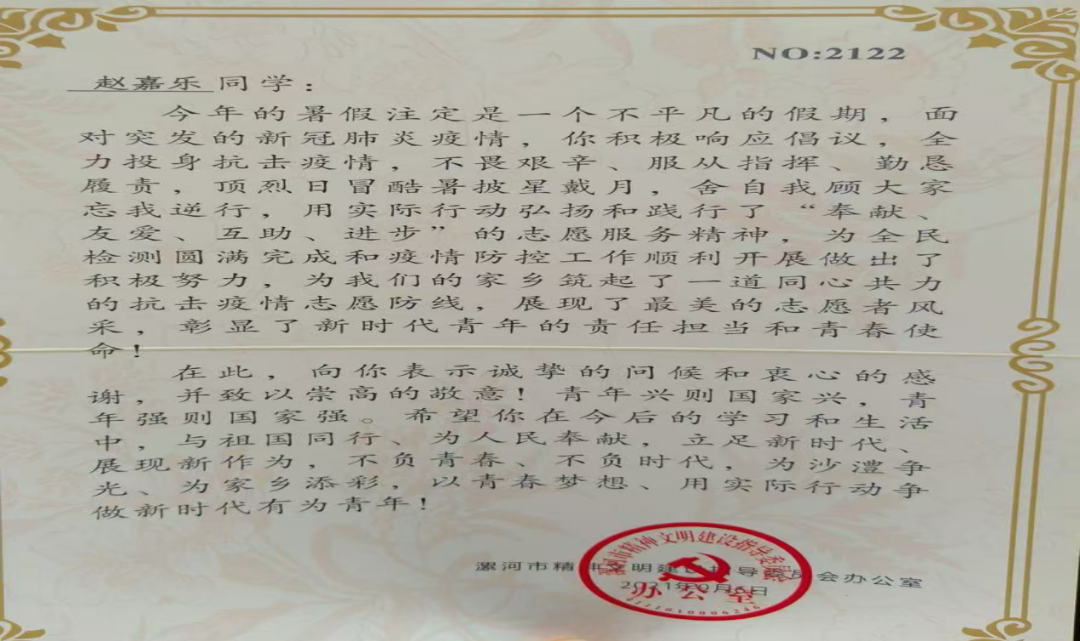 NO:2122
赵嘉乐同学：
今年的暑假注定是一个不平凡的假期，面
对突发的新冠肺炎疫情，你积极响应倡议，全
力投身抗击疫情，不畏艰辛、服从指挥、勤恳
履责，顶烈日冒酷暑披星戴月，舍自我顾大家
忘我逆行，用实际行动弘扬和践行了“奉献、
友爱、互助、进步”的志愿服务精神，为全民
检测圆满完成和疫情防控工作顺利开展做出了
积极努力，为我们的家乡筑起了一道同心共力
的抗击疫情志愿防线，展现了最美的志愿者风
采，彰显了新时代青年的责任担当和青春使
命！
在此，向你表示诚挚的问候和衷心的感
谢，并致以崇高的敬意！青年兴则国家兴，青
年强则国家强。希望你在今后的学习和生活
中，与祖国同行、为人民奉献，立足新时代、
展现新作为，不负青春、不负时代，为沙澧争
光、为家乡添彩，以青春梦想、用实际行动争
做新时代有为青年！
漯河市精神文明建设指导委员会办公室
2021年9月 日
漯河市精神文明建设指导委员会
办公室